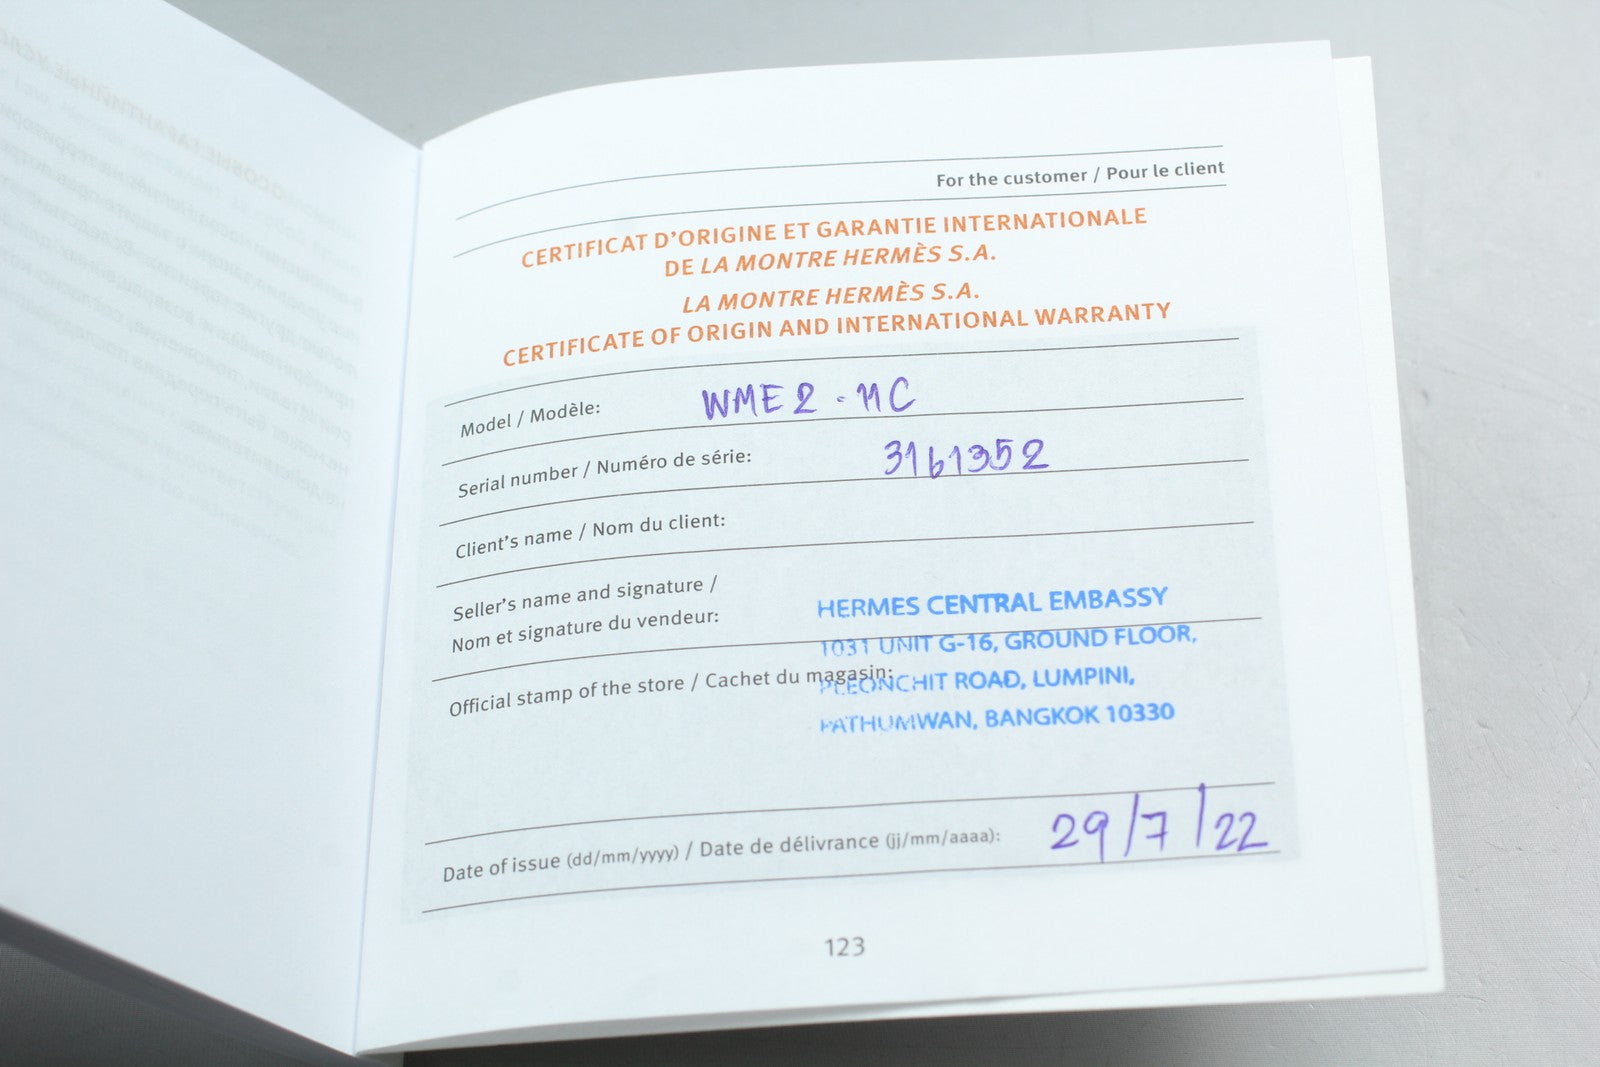 For the customer / Pour le client
CERTIFICAT D'ORIGINE ET GARANTIE INTERNATIONALE
DE LA MONTRE HERMÈS S.A.
LA MONTRE HERMÈS S.A.
CERTIFICATE OF ORIGIN AND INTERNATIONAL WARRANTY
Model / Modèle: WME2-11C
Serial number / Numéro de série: 3161352
Client's name / Nom du client:
Seller's name and signature /
Nom et signature du vendeur:
HERMES CENTRAL EMBASSY
1031 UNIT G-16, GROUND FLOOR,
Official stamp of the store / Cachet du magasin:
PLEONCHIT ROAD, LUMPINI,
PATHUMWAN, BANGKOK 10330
Date of issue (dd/mm/yyyy) / Date de délivrance (jj/mm/aaaa): 29/7/22
123